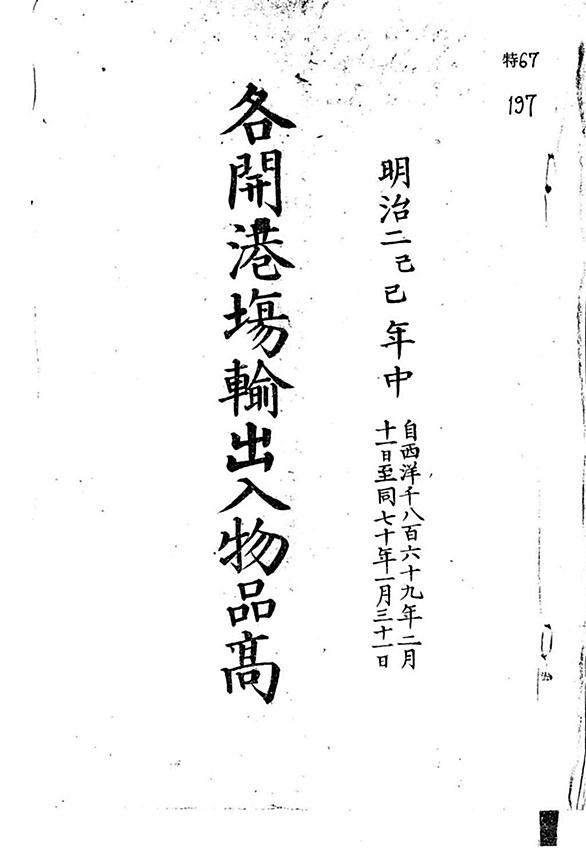 特67
197
明治二己巳年中
自西洋千八百六十九年二月
十一日至同七十年一月三十一日
各開港塲輸出入物品髙